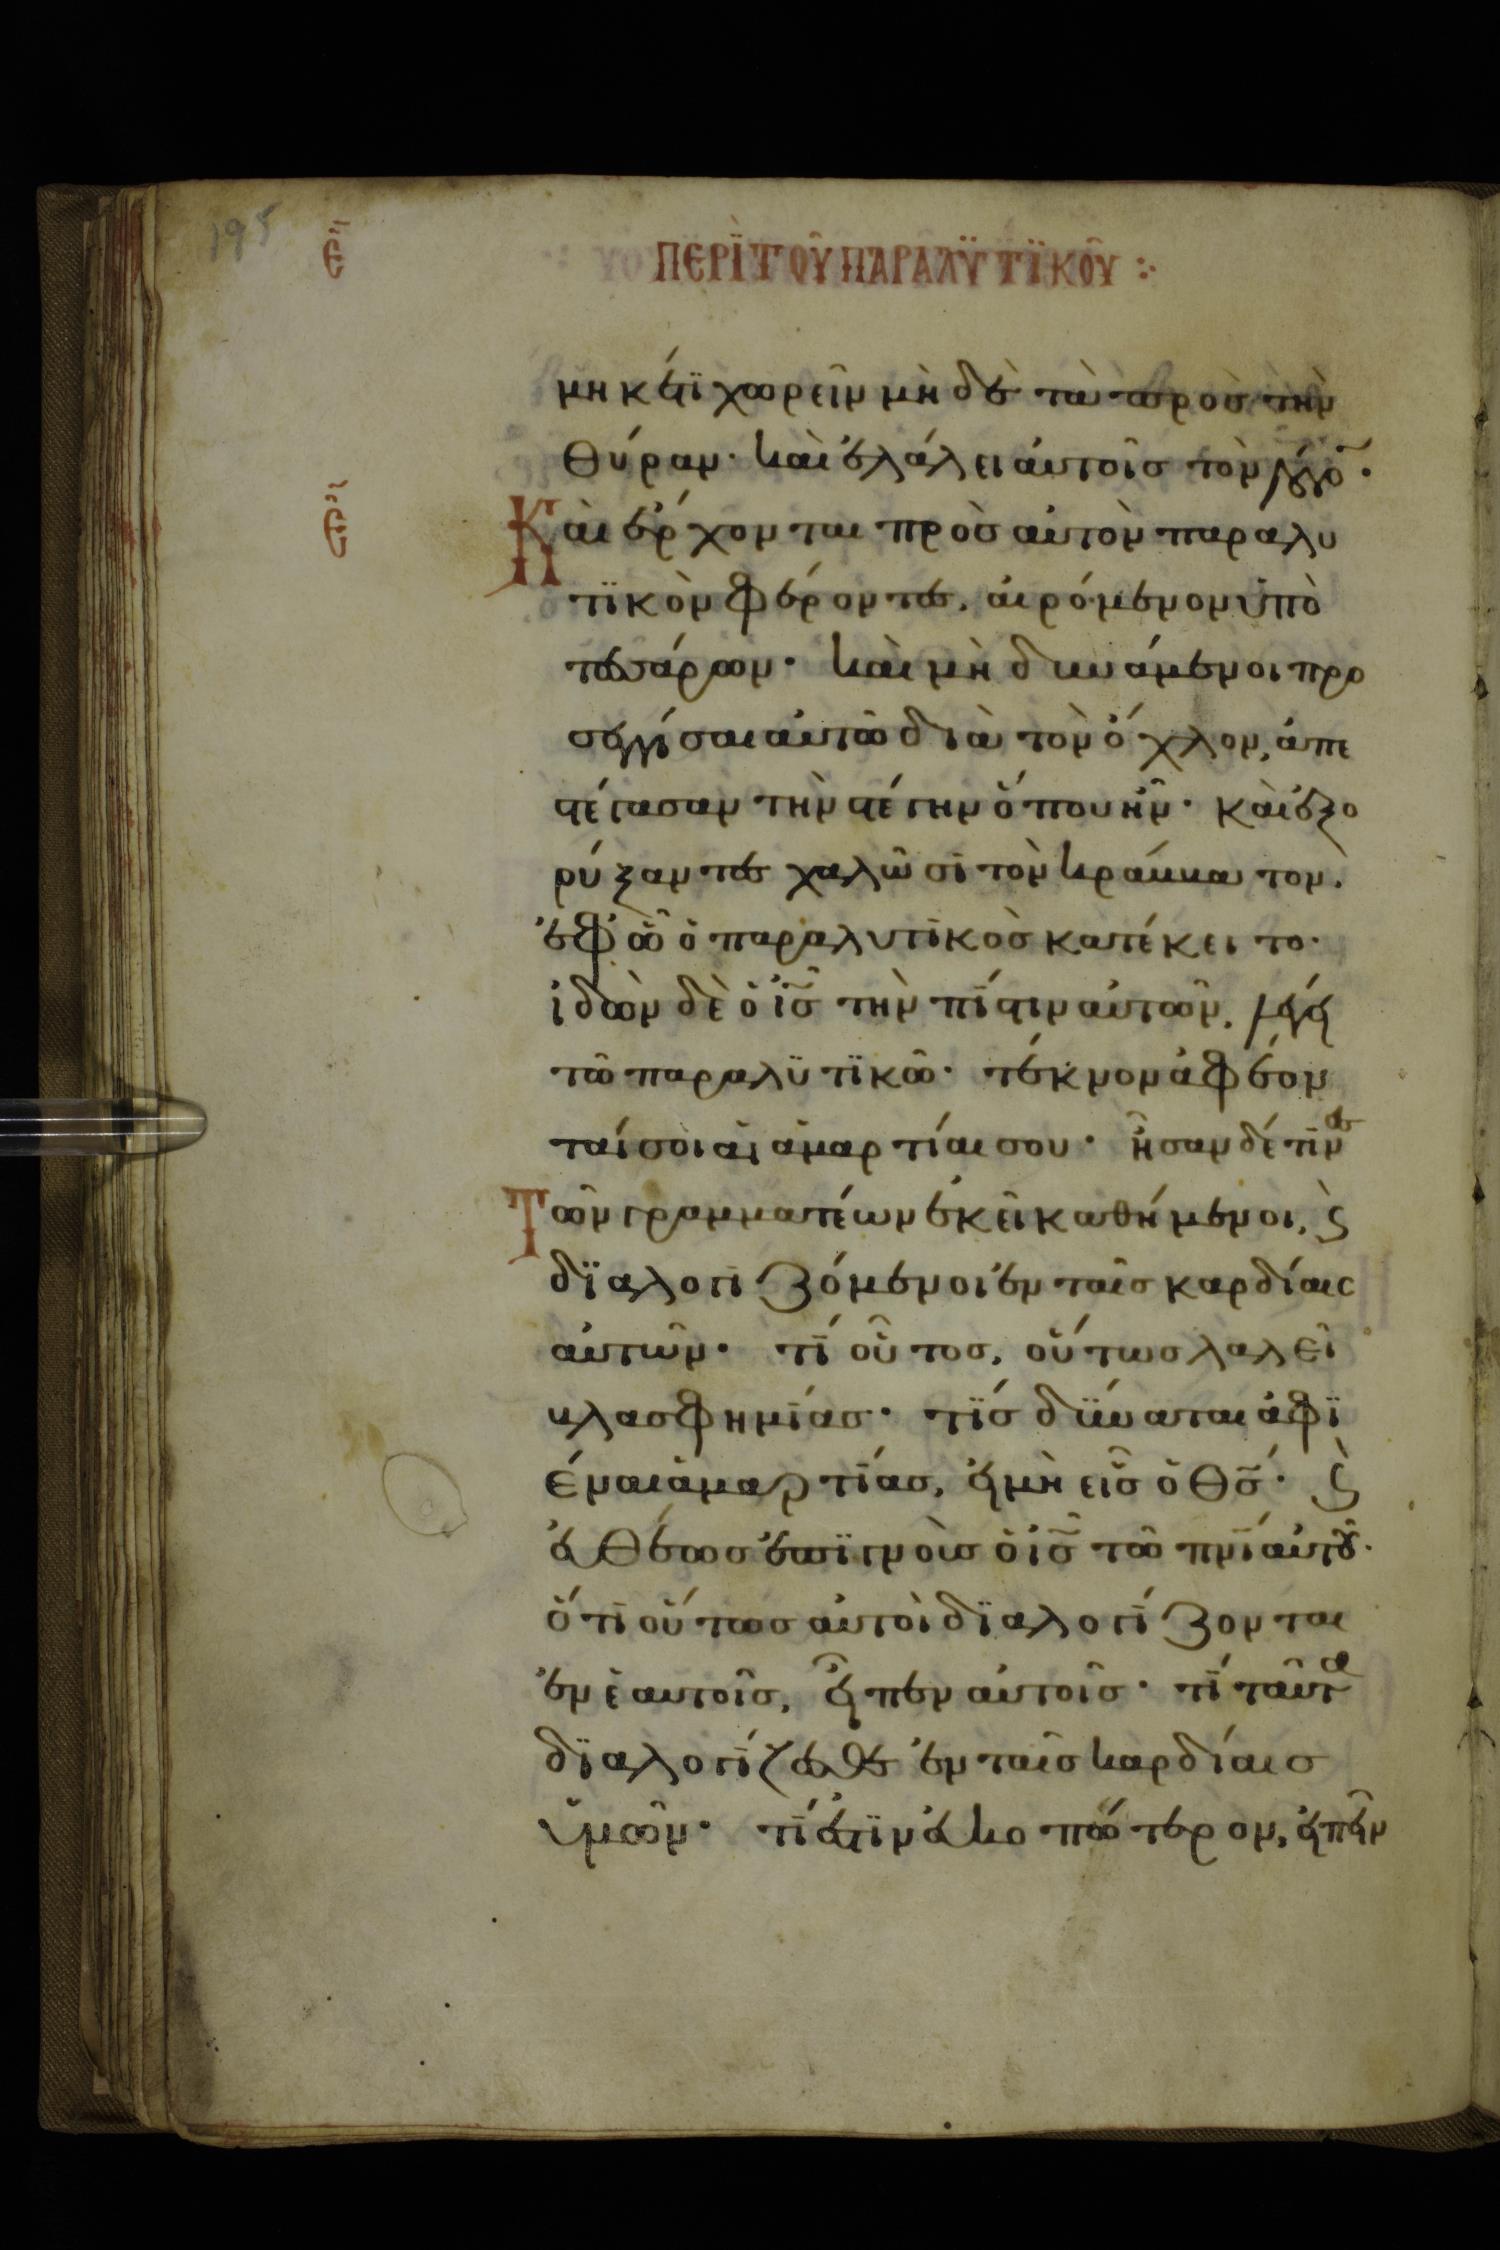 195
ΠΕΡῚ ΤΟῦ ΠΑΡΑΛΫΤΪΚΟῦ :·
μηκέτϊ χωρεῖν μὴ δὲ τὰ πρὸς τὴν
θύραν· καὶ ἐλάλει αὐτοῖσ τὸν λόγο̅·
Καὶ ἔρχονται πρὸσ αὐτὸν παραλυ
τϊκὸν φέροντεσ, αἰρόμενον ὑπὸ
τεσσάρων· καὶ μὴ δυνάμενοι προ
σεγγίσαι αὐτῶ διὰ τὸν ὄχλον, ἀπε
στέγασαν τὴν στέγην ὅπου ἦν· καὶ ἐξο
ρύξαντεσ χαλῶσϊ τὸν κράββατον,
ἐφ' ὧ ὁ παραλυτϊκὸσ κατέκειτο·
ἰδὼν δὲ ὁ ἰ̅σ̅ τὴν πίστιν αὐτῶν, λέγει
τῶ παραλϋτϊκῶ· τέκνον ἀφέων
ταί σοι αἱ ἁμαρτίαι σου· ἦσαν δέ τϊνεσ
Τῶν γραμματέων ἐκεῖ καθήμενοι, ϛ̀
δϊαλογϊζόμενοι ἐν ταῖσ καρδίαισ
αὐτῶν· τί οὗτοσ, οὕτωσ λαλεῖ
βλασφημίασ· τίσ δύναται ἀφϊ
έναι ἁμαρτίασ, εἰ μὴ εἷσ ὁ θ̅σ̅· ϛ̀
εὐθέωσ ἐπϊγνοὺσ ὁ ἰ̅σ̅ τῶ π̅ν̅ι̅ αὐτοῦ·
ὅτϊ οὕτωσ αὐτοὶ δϊαλογίζονται
ἐν ἑαυτοῖσ, εἶπεν αὐτοῖσ· τί ταῦτα
δϊαλογίζεσθε ἐν ταῖσ καρδίαισ
ὑμῶν· τί ἐστϊν εὐκοπώτερον, εἰπεῖν